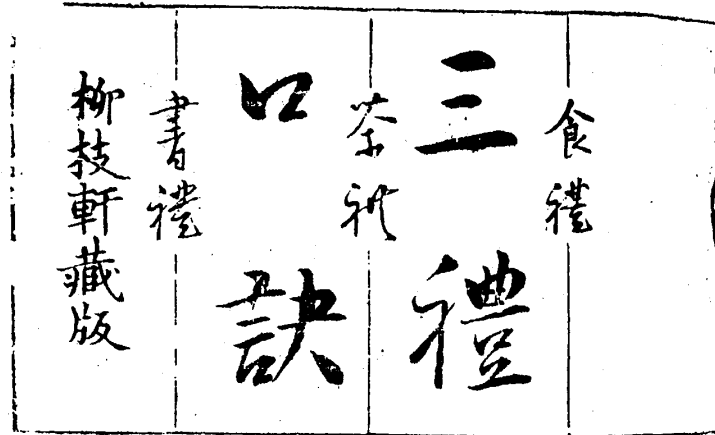 食禮
三禮
茶礼
口訣
書禮
柳枝軒藏版